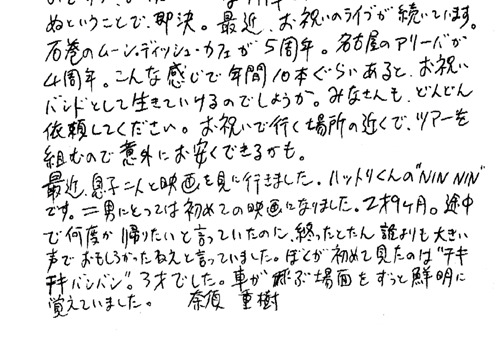 ぬということで、即決。最近、お祝いのライブが続いています。
石巻のムーンディッシュ・カフェが5周年。名古屋のアリーバが
4周年。こんな感じで年間10本ぐらいあると、お祝い
バンドとして生きていけるのでしょうか。みなさんも、どんどん
依頼してください。お祝いで行く場所の近くで、ツアーを
組むので意外にお安くできるかも。
最近、息子二人と映画を見に行きました。ハットリくんの"NIN NIN"
です。二男にとっては初めての映画になりました。2才9ヶ月。途中
で何度か帰りたいと言っていたのに、終ったとたん誰よりも大きい
声でおもしろかったねえと言っていました。ぼくが初めて見たのは"チキ
チキバンバン"。3才でした。車が飛ぶ場面をずっと鮮明に
覚えていました。 奈須 重樹